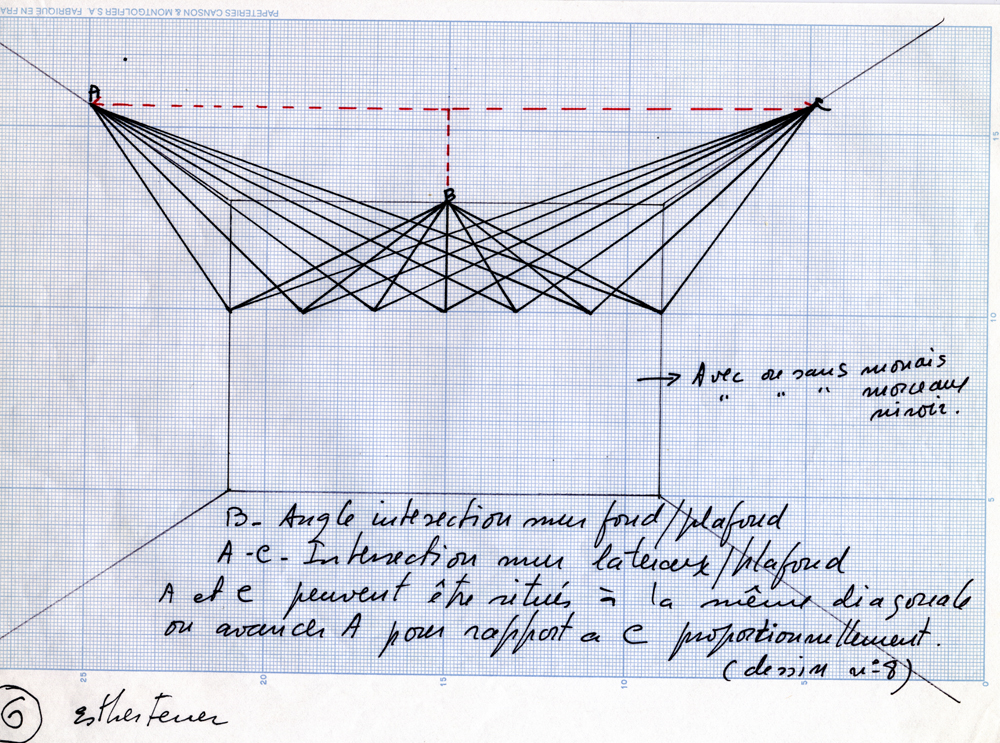 PAPETERIES CANSON & MONTGOLFIER S.A. FABRIQUE EN FRA
A
C
B
15
10
5
→ Avec ou sans
" " " morceaux
miroir.
B - Angle intersection mur fond/plafond
A - C - Intersection mur lateraux/plafond
A et C peuvent être situés à la même diagonale
ou avancer A pour rapport a C proportionnellement.
(dessin n° 8)
25
20
15
10
5
0
6
Esther Ferrer